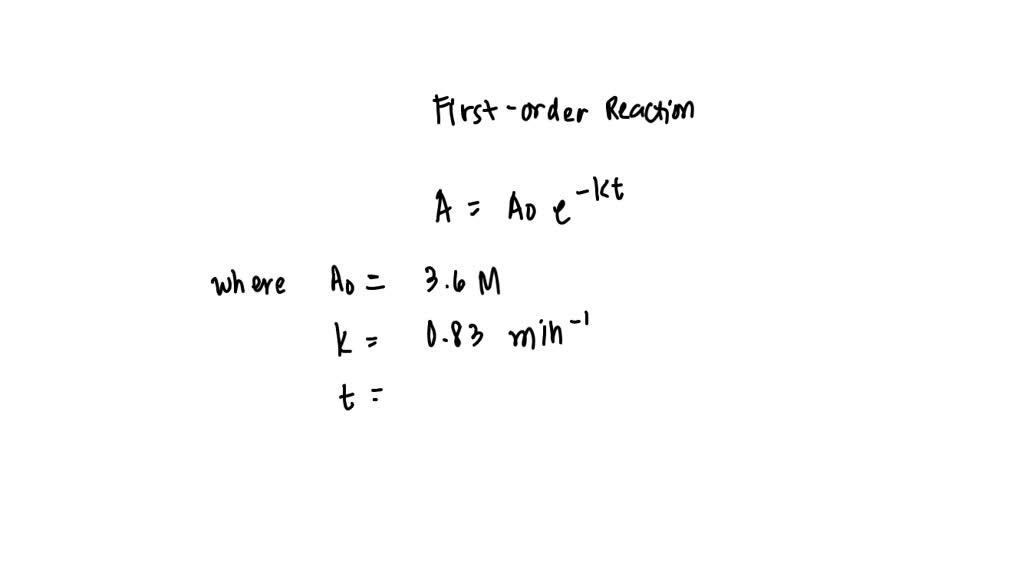 First-order Reaction
A = A₀ e^-kt
where A₀ = 3.6 M
k = 0.83 min⁻¹
t =